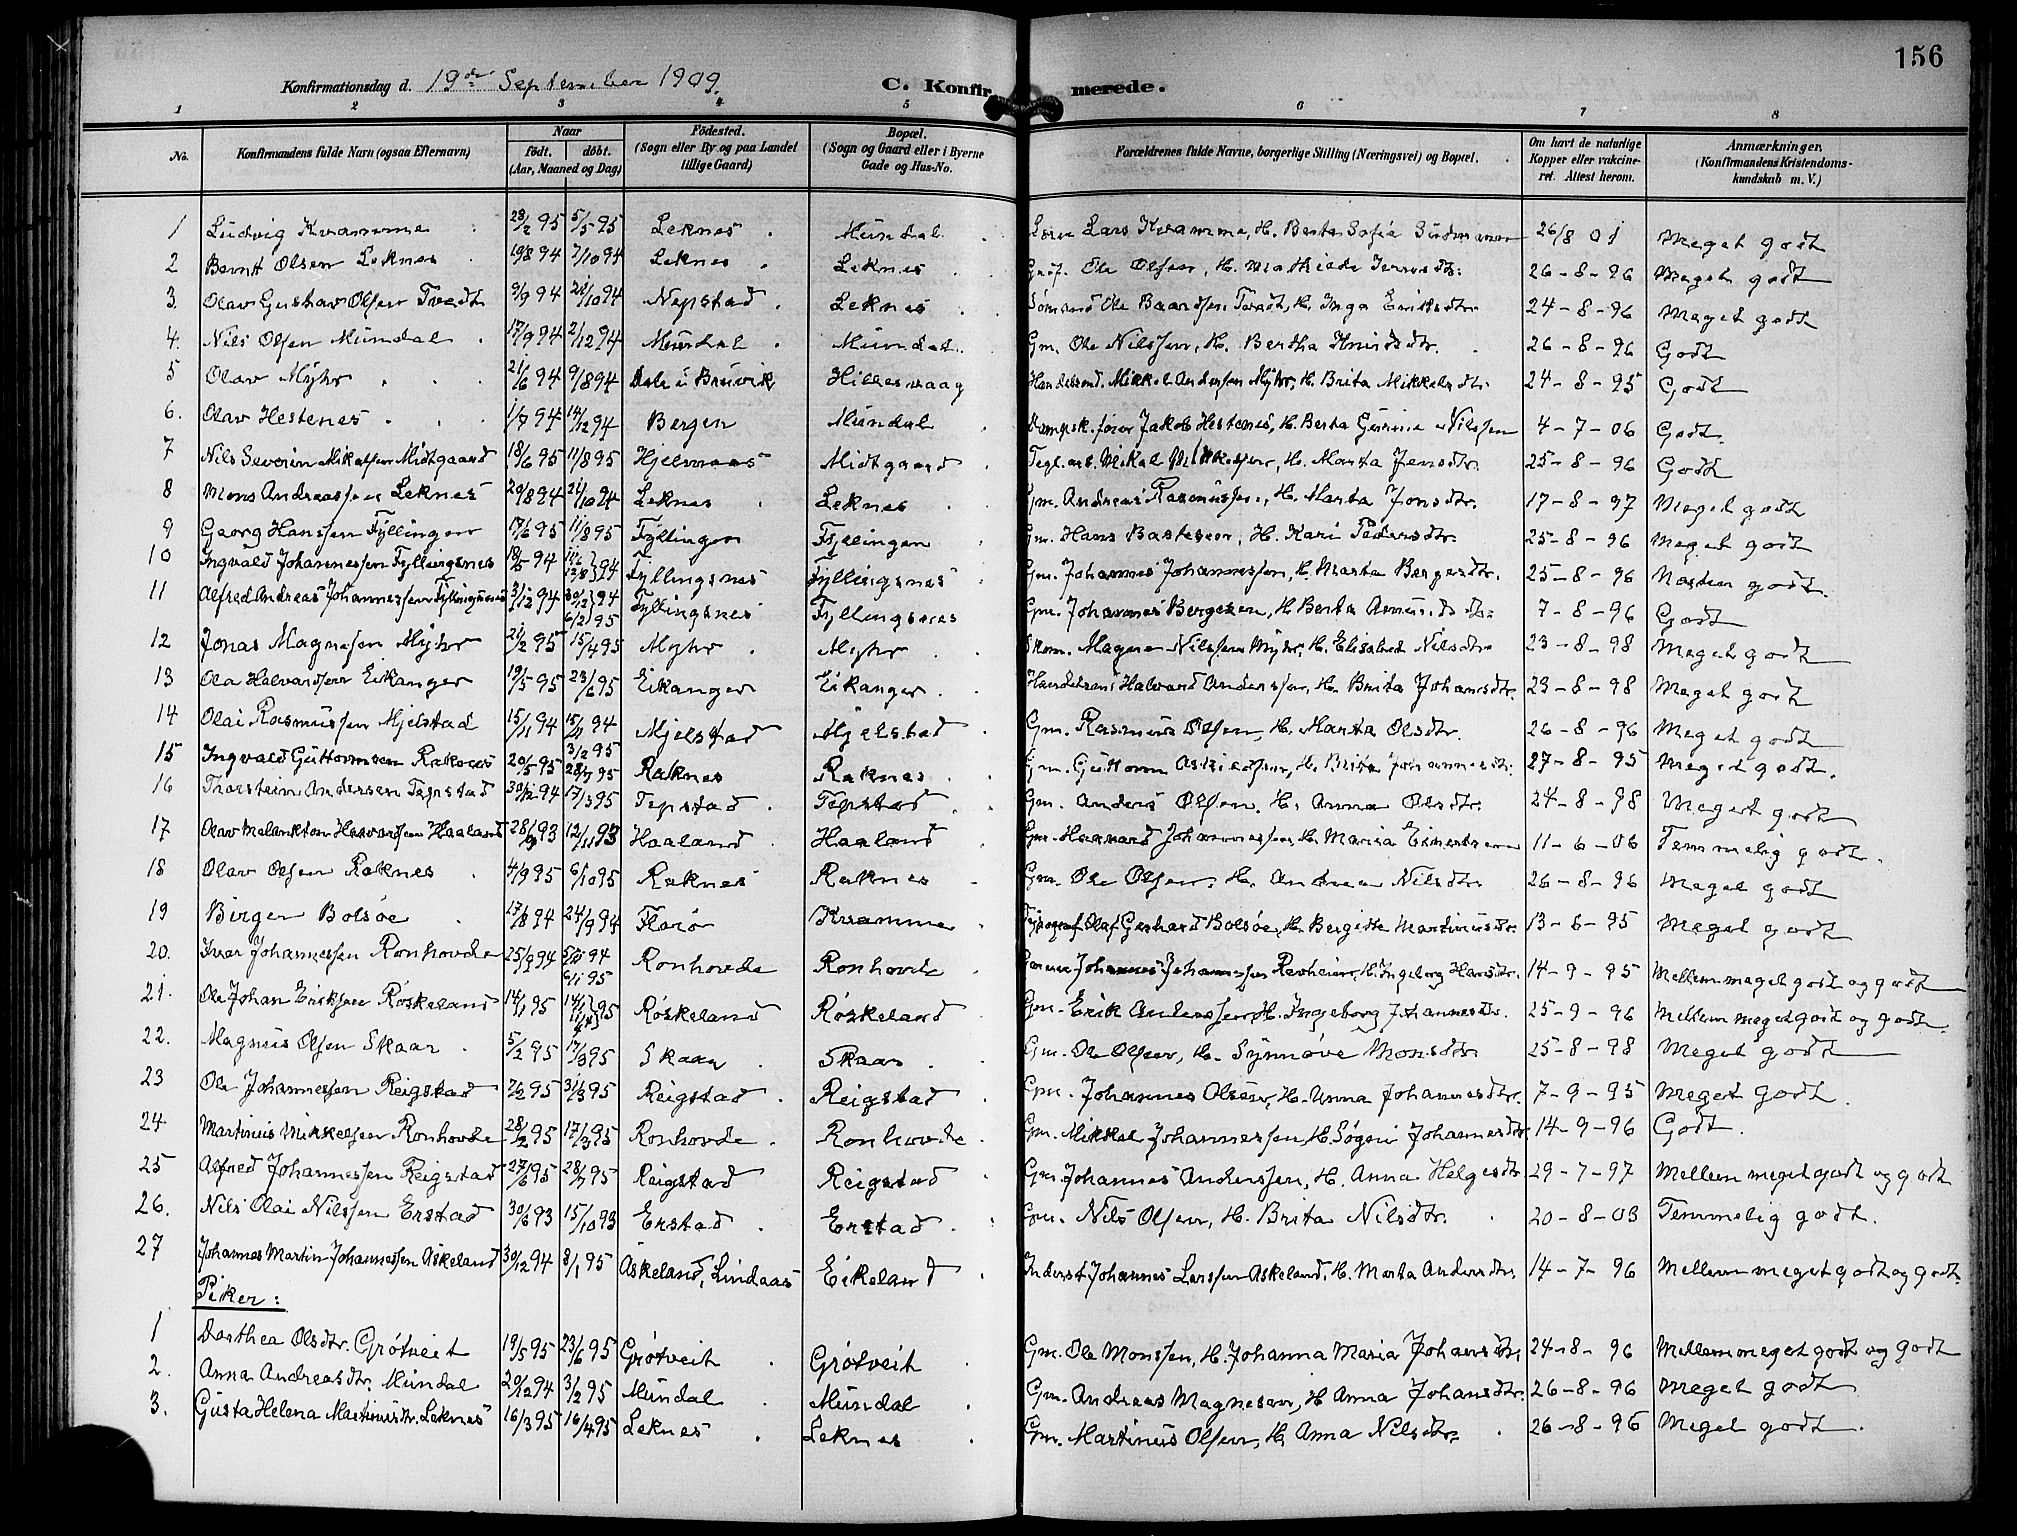 156
Konfirmationsdag d. 19de September 1909. C. Konfirmerede.
1 2 3 4 5 6 7 8
No. Konfirmandens fulde Navn (ogsaa Efternavn) Naar født. døbt. (Aar, Maaned og Dag) Födested. (Sogn eller By og paa Landet tillige Gaard) Bopæl. (Sogn og Gaard eller i Byerne Gade og Hus-No. Forældrenes fulde Navne, borgerlige Stilling (Næringsvei) og Bopæl. Om havt de naturlige Kopper eller vakcineret. Attest herom. Anmærkninger. (Konfirmandens Kristendomskundskab m. V.)
1 Ludvig Kvamme 28/2 95 5/5 95 Leknes Mundal Lars Kvamme, H. Berta Sofia 26/8 01 Meget godt
2 Bernt Olsen Leknes 19/8 94 7/10 94 Leknes Leknes Ole Olsen, H. 26-8-96 Meget godt
3. Olav Gustav Olsen Tvedt 9/9 94 21/10 94 Nepstad Leknes Sømand Ole Baardsen Tvedt, H. Inga 24-8-96 Meget godt
4. Nils Olsen Mundal 17/9 94 2/12 94 Mundal Mundal Gm. Ole Nilssen, H. Bertha Knutsdtr. 26-8-96 Godt
5 Olav Myhr 21/6 94 9/8 94 Dale i Bruvik Hillesvaag Handelsm. Mikkel Andersen Myhr, H. Brita Mikkelsdtr. 24-8-95 Godt
6. Olav Hestenes 1/7 94 14/12 94 Bergen Mundal Dampsk.fører Jakob Hestenes, H. Berta Gurine Nilssen 4-7-06 Godt.
7 Nils Severin Mikalsen Midtgaard 18/6 95 11/8 95 Hjelmaas Midtgaard Tegl.arb. Mikal Mikkelsen, H. Marta Jensdtr. 25-8-96 Godt
8 Mons Andreassen Leknes 20/8 94 21/10 94 Leknes Leknes Gm. Andreas Rasmussen, H. Marta Jonsdtr. 17-8-97 Meget godt
9 Georg Hanssen Fyllingen 17/6 95 11/8 95 Fyllingen Fyllingen Gm. Hans Bastesen, H. Kari Pedersdtr. 25-8-96 Meget godt
10 Ingvald Johannessen Fyllingsnes 18/5 94 11/6 12/8 } 94 Fyllingsnes Fyllingsnes Gm. Johannes Johannessen, H. Marta Bergesdtr. 25-8-96 Næsten godt.
11 Alfred Andreas Johannessen Fyllingsnes 3/12 94 30/12 } 94 6/2 } 95 Fyllingsnes Fyllingsnes Gm. Johannes Bergesen, H. Berta 7-8-96 Godt
12 Jonas Magnesen Myhr 21/2 95 15/4 95 Myhr Myhr Skom. Magne Nilssen Myhr, H. Elisabet Nilsdtr. 23-8-98 Meget godt
13 Ola Halvardsen Eikanger 19/5 95 23/6 95 Eikanger Eikanger Handelsm. Halvard Anderssen, H. Brita Johansdtr. 23-8-98 Meget godt
14 Olai Rasmussen Mjelstad 15/11 94 15/11 94 3/2 95 Mjelstad Mjelstad Gm. Rasmus Olsen, H. Marta Olsdtr. 26-8-96 Meget godt
15 Ingvald Guttormsen Raknes 20/5 95 28/7 95 Raknes Raknes Gm. Guttorm Askildsen, H. Brita Johannesdtr. 27-8-95 Meget godt.
16 Thorstein Andersen Tepstad 30/12 94 17/3 95 Tepstad Tepstad Gm. Anders Olsen, H. Anna Olsdtr. 24-8-98 Meget godt
17 Olav Melankton Haavardsen Haaland 28/9 93 12/11 93 Haaland Haaland Gm. Haavard Johannessen, H. Maria 11-6-06 Temmelig godt.
18 Olav Olsen Raknes 4/9 95 6/10 95 Raknes Raknes Gm. Ole Olsen, H. Andrea Nilsdtr. 26-8-96 Meget godt
19 Birger Bolsøe 17/8 94 24/9 94 Florø Kvamme Typograf Olaf Gerhard Bolsøe, H. Bergitte Martinusdtr. 13-6-95 Meget godt
20. Ivar Johannessen Ronhovde 25/9 94 5/10 94 6/1 95 Ronhovde Ronhovde Johannes Johannessen H. Ingeborg Hansdtr. 14-9-95 Mellem meget godt og godt
21. Ole Johan Eriksen Røskeland 14/1 95 14/1 } 95 Røskeland Røskeland Gm. Erik Anderssen, H. Ingeborg Johannesdtr. 25-9-96 Mellem meget godt og godt.
22. Magnus Olsen Skaar 5/2 95 17/3 95 Skaar Skaar Gm. Ole Olsen, H. Synnøve Monsdtr. 25-8-98 Meget godt
23 Ole Johannessen Reigstad 7/2 95 31/3 95 Reigstad Reigstad Gm. Johannes Olsen, H. Anna Johannesdtr. 7-9-95 Meget godt.
24 Martinus Mikkelsen Ronhovde 28/2 95 17/3 95 Ronhovde Ronhovde Gm. Mikkel Johannessen, H. Søgni Johannesdtr. 14-9-96 Godt.
25 Alfred Johannessen Reigstad 27/6 95 28/7 95 Reigstad Reigstad Gm. Johannes Anderssen, H. Anna Helgesdtr. 29-7-97 Mellem meget godt og godt
26. Nils Olai Nilssen Erstad 30/6 93 15/10 93 Erstad Erstad Gm. Nils Olsen, H. Brita Nilsdtr. 20-8-03 Temmelig godt.
27 Johannes Martin Johannessen Askeland 30/12 94 8/1 95 Askeland, Lindaas Eikeland Inderst Johannes Larssen Askeland, H. Marta Andersdtr. 14-7-96 Mellem meget godt og godt.
Piker:
1 Dorthea Olsdtr. Grøtveit 19/5 95 23/6 95 Grøtveit Grøtveit Gm. Ole Monssen, H. Johanna Maria Johansdtr. 24-8-96 Mellem meget godt og godt
2. Anna Andreasdtr. Mundal 20/12 94 3/2 95 Mundal Mundal Gm. Andreas Magnesen, H. Anna Johansdtr. 26-8-96 Meget godt
3. Gusta Helena Martinusdtr. Leknes 16/3 95 16/4 95 Leknes Leknes Gm. Martinus Olsen, H. Anna Nilsdtr. 26-8-96 Meget godt.